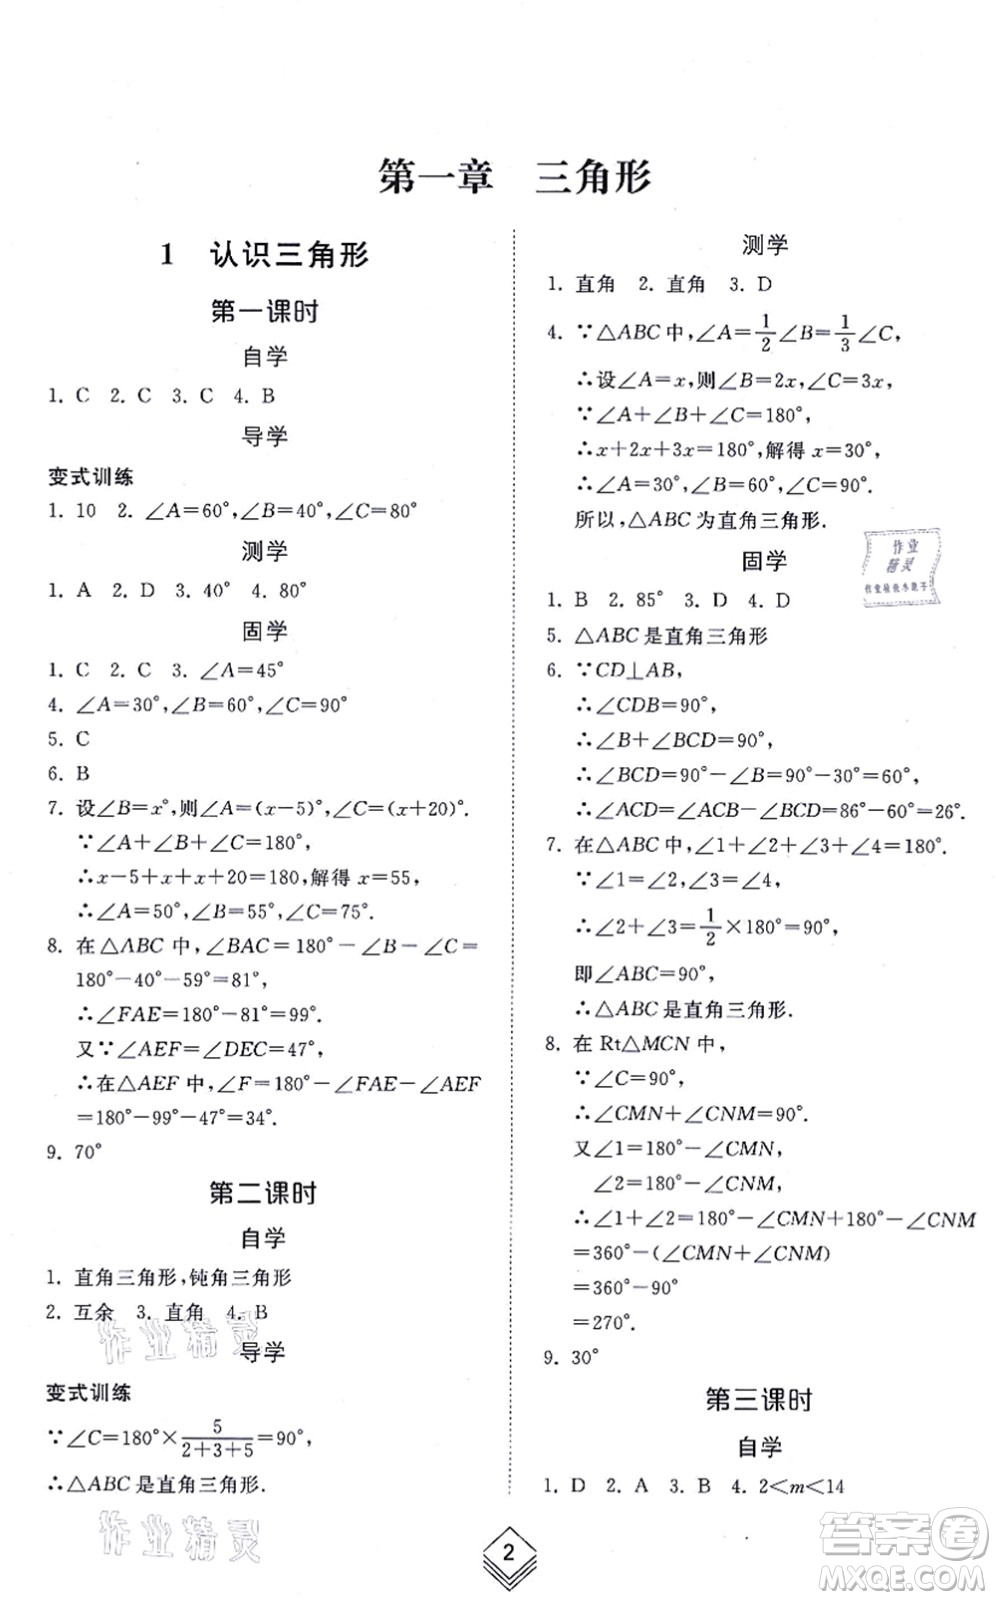 第一章 三角形
1 认识三角形
第一课时
自学
1. C 2. C 3. C 4. B
导学
变式训练
1. 10 2. ∠A=60°,∠B=40°,∠C=80°
测学
1. A 2. D 3. 40° 4. 80°
固学
1. C 2. C 3. ∠A=45°
4. ∠A=30°,∠B=60°,∠C=90°
5. C
6. B
7. 设∠B=x°,则∠A=(x-5)°,∠C=(x+20)°.
∵∠A+∠B+∠C=180°,
∴x-5+x+x+20=180,解得 x=55,
∴∠A=50°,∠B=55°,∠C=75°.
8. 在△ABC 中,∠BAC=180°-∠B-∠C=
180°-40°-59°=81°,
∴∠FAE=180°-81°=99°.
又∵∠AEF=∠DEC=47°,
∴在△AEF 中,∠F=180°-∠FAE-∠AEF
=180°-99°-47°=34°.
9. 70°
第二课时
自学
1. 直角三角形,钝角三角形
2. 互余 3. 直角 4. B
作业精灵
导学
变式训练
∵∠C=180°×5/(2+3+5)=90°,
∴△ABC是直角三角形.
作业精灵
测学
1. 直角 2. 直角 3. D
4. ∵△ABC中,∠A=1/2∠B=1/3∠C,
∴设∠A=x,则∠B=2x,∠C=3x,
∵∠A+∠B+∠C=180°,
∴x+2x+3x=180°,解得 x=30°,
∴∠A=30°,∠B=60°,∠C=90°.
所以,△ABC为直角三角形.
作业
精灵
固学
1. B 2. 85° 3. D 4. D
5. △ABC是直角三角形
6. ∵CD⊥AB,
∴∠CDB=90°,
∴∠B+∠BCD=90°,
∴∠BCD=90°-∠B=90°-30°=60°,
∴∠ACD=∠ACB-∠BCD=86°-60°=26°.
7. 在△ABC中,∠1+∠2+∠3+∠4=180°.
∵∠1=∠2,∠3=∠4,
∴∠2+∠3=1/2×180°=90°,
即∠ABC=90°,
∴△ABC是直角三角形.
8. 在 Rt△MCN 中,
∵∠C=90°,
∴∠CMN+∠CNM=90°.
又∠1=180°-∠CMN,
∠2=180°-∠CNM,
∴∠1+∠2=180°-∠CMN+180°-∠CNM
=360°-(∠CMN+∠CNM)
=360°-90°
=270°.
9. 30°
第三课时
自学
1. D 2. A 3. B 4. 2<m<14
2
答案卷
MXQE.COM